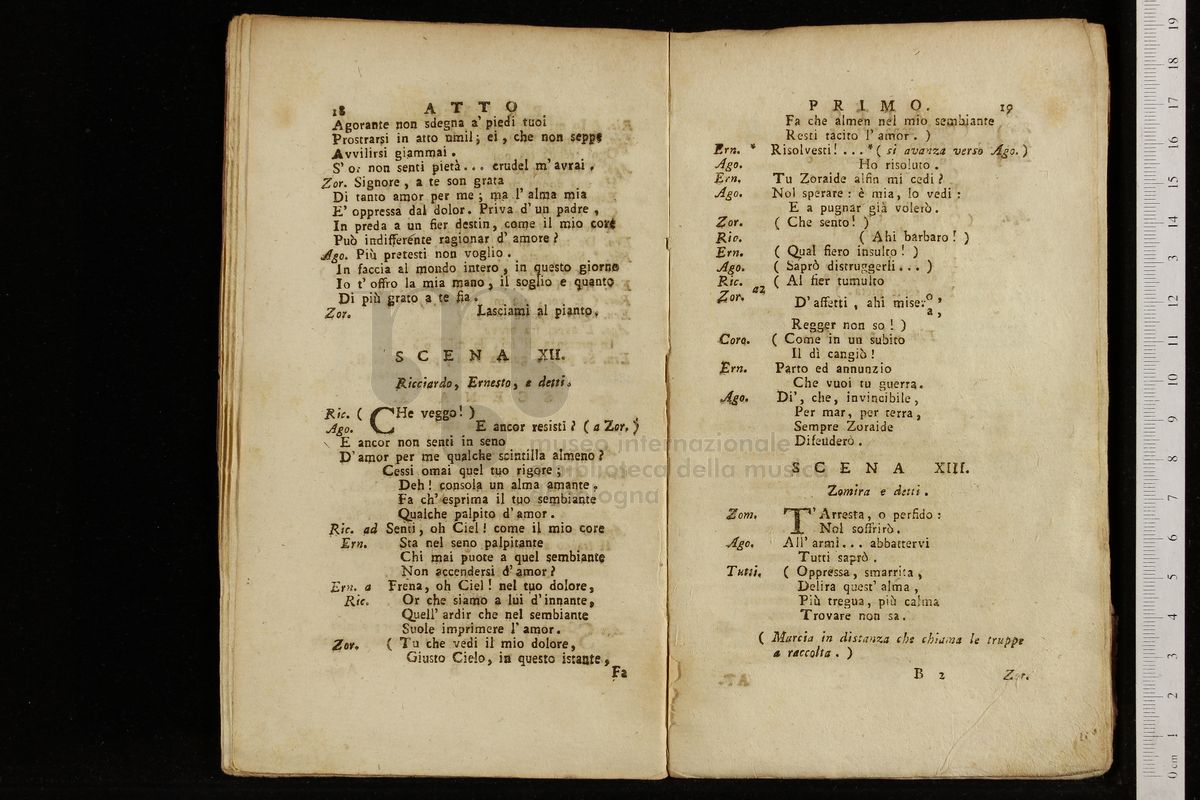 18 ATTO
Agorante non sdegna a' piedi tuoi
Prostrarsi in atto umil; ei, che non seppe
Avvilirsi giammai.
S' or non senti pietà... crudel m' avrai.
Zor. Signore, a te son grata
Di tanto amor per me; ma l' alma mia
E' oppressa dal dolor. Priva d' un padre,
In preda a un fier destin, come il mio core
Può indifferente ragionar d' amore?
Ago. Più pretesti non voglio.
In faccia al mondo intero, in questo giorno
Io t' offro la mia mano, il soglio e quanto
Di più grato a te fia.
Zor. Lasciami al pianto.
SCENA XII.
Ricciardo, Ernesto, e detti.
Ric. ( CHe veggo! )
Ago. E ancor resisti? ( a Zor. )
E ancor non senti in seno
D' amor per me qualche scintilla almeno?
Cessi omai quel tuo rigore;
Deh! consola un alma amante.
Fa ch' esprima il tuo sembiante
Qualche palpito d' amor.
Ric. ad Senti, oh Ciel! come il mio core
Ern. Sta nel seno palpitante
Chi mai puote a quel sembiante
Non accendersi d' amor?
Ern. a Frena, oh Ciel! nel tuo dolore,
Ric. Or che siamo a lui d' innante,
Quell' ardir che nel sembiante
Suole imprimere l' amor.
Zor. ( Tu che vedi il mio dolore,
Giusto Cielo, in questo istante,
Fa
PRIMO. 19
Fa che almen nel mio sembiante
Resti tacito l' amor. )
Ern. * Risolvesti! ...* ( si avanza verso Ago. )
Ago. Ho risoluto.
Ern. Tu Zoraide alfin mi cedi?
Ago. Nol sperare: è mia, lo vedi:
E a pugnar già volerò.
Zor. ( Che sento! )
Ric. ( Ahi barbaro! )
Ern. ( Qual fiero insulto! )
Ago. ( Saprò distruggerli... )
Ric. a2 ( Al fier tumulto
Zor. D' affetti, ahi miser o, a,
Regger non so! )
Coro. ( Come in un subito
Il dì cangiò!
Ern. Parto ed annunzio
Che vuoi tu guerra.
Ago. Di', che, invincibile,
Per mar, per terra,
Sempre Zoraide
Difenderò.
SCENA XIII.
Zomira e detti.
Zom. T' Arresta, o perfido:
Nol soffrirò.
Ago. All' armi... abbattervi
Tutti saprò.
Tutti. ( Oppressa, smarrita,
Delira quest' alma,
Più tregua, più calma
Trovare non sa.
( Marcia in distanza che chiama le truppe
a raccolta. )
B 2 Zor.
museo internazionale
biblioteca della musica
bologna
0 cm 1 2 3 4 5 6 7 8 9 10 11 12 13 14 15 16 17 18 19